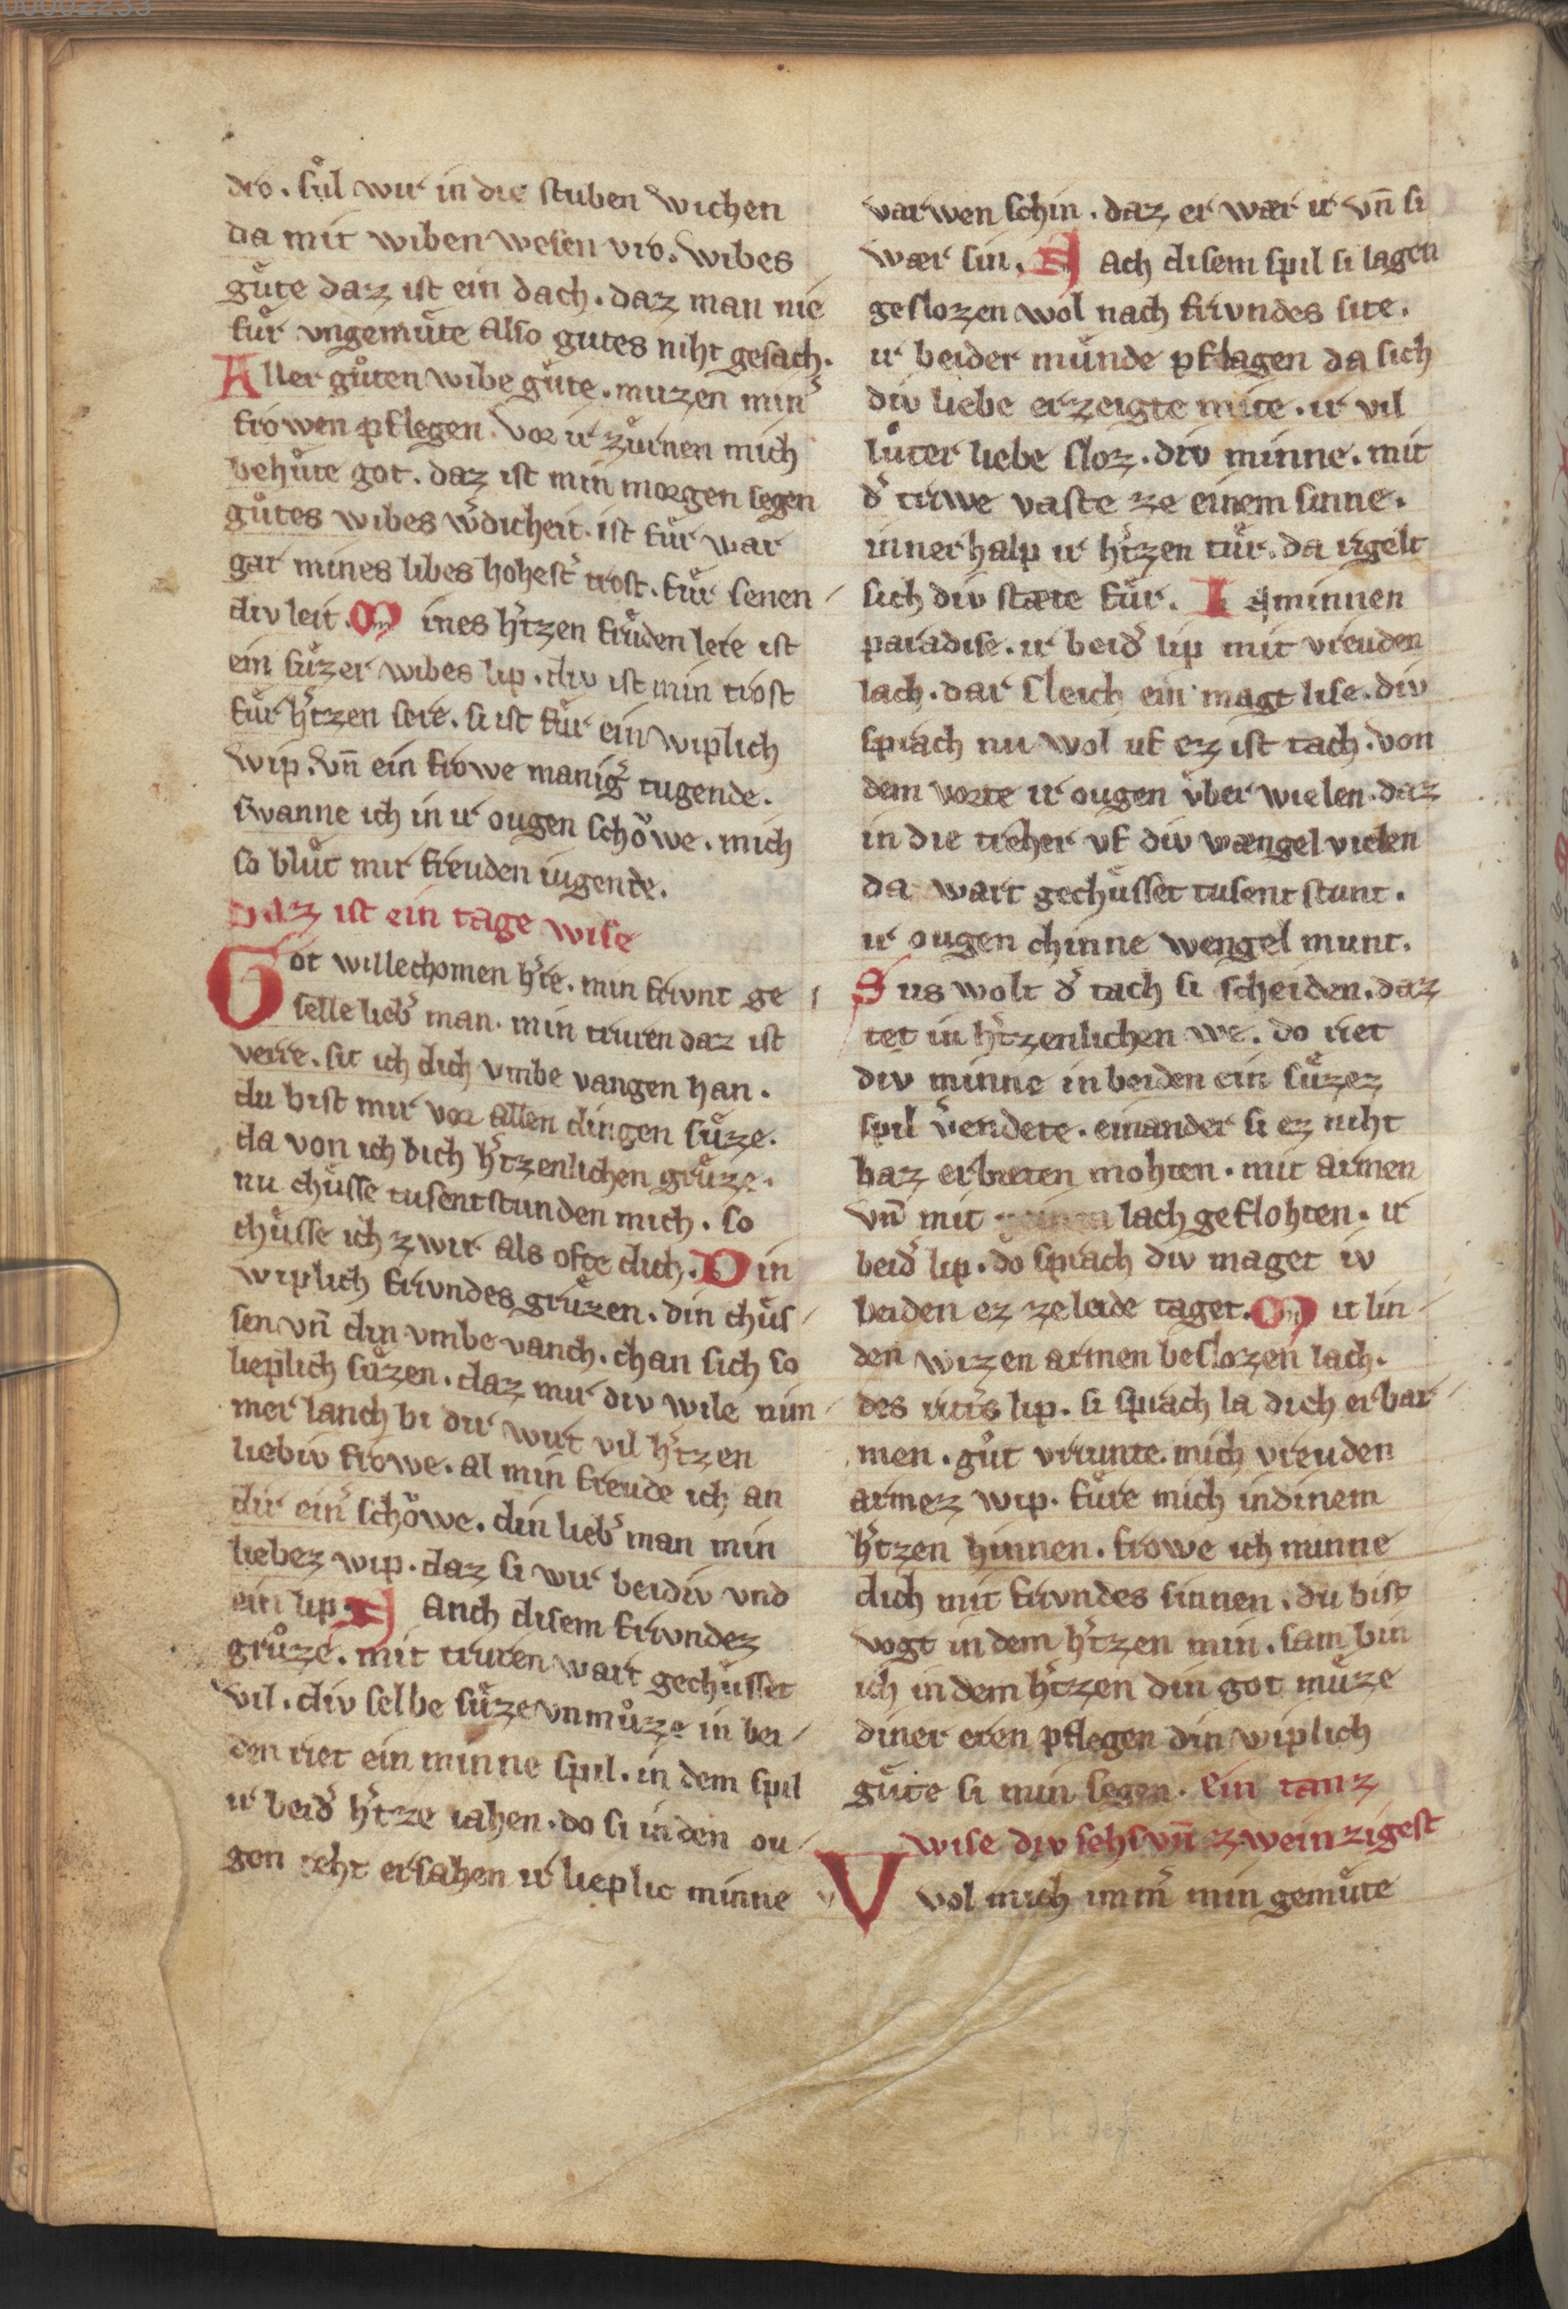 00002233
dro. sůl wir in die stuben wichen
da mit wiben wesen vro. wibes
gůte daz ist ein dach. daz man nie
fůr vngemůte also gutes niht gesach.
Aller gůten wibe gůte. muzen min᷑
frowen pflegen. vor ir zůrnen mich
behůte got. daz ist min morgen segen
gůtes wibes w᷑dicheit. ist fůr war
gar mines libes hohest᷑ trost. fůr senen
div leit. Mines h᷑tzen frůden lere ist
ein sůzer wibes lip. div ist min trost
fůr h᷑tzen sere. si ist fůr ein wiplich
wip. vn̄ ein frowe manig᷑ tugende.
swanne ich in ir ougen schŏwe. mich
so blůt mit freuden iugende.
Daz ist ein tage wise
Got willechomen h᷑re. min frivnt ge
selle lieb᷑ man. min truren daz ist
verre. sit ich dich vmbe vangen han.
du bist mir vor allen dingen sůze.
da von ich dich h᷑tzenlichen grůze.
nu chůsse tusentstunden mich. so
chůsse ich zwir als ofte dich. Din
wiplich frivndes grůzen. din chůs
sen vn̄ din vmbe vanch. chan sich so
lieplich sůzen. daz mir div wile nim
mer lanch bi dir wirt vil h᷑tzen
liebiv frowe. al min freude ich an
dir ein᷑ schŏwe. din lieb᷑ man min
liebez wip. daz si wir beidiv vnd
ein lip. Nanch disem frivndez
grůze. mit truren wart gechůsset
vil. div selbe sůze vnmůze in bei
den riet ein minne spil. in dem spil
ir beid᷑ h᷑tze iahen. do si in den ou
gen reht ersahen ir lieplic minne
varwen schin. daz er wær ir vn̄ si
wær sin. Nach disem spil si lagen
geslozen wol nach frivndes site.
ir beider můnde pflagen da sich
div liebe erzeigte mite. ir vil
lůter liebe sloz. div minne. mit
d᷑ triwe vaste ze einem sinne.
innerhalp ir h᷑tzen tůr. da rigelt
sich div stæte fůr. In minnen
paradise. ir beid᷑ lip mit vreuden
lach. dar sleich ein magt lise. div
sprach nu wol uf ez ist tach. von
dem worte ir ougen ůber wielen. daz
in die treher vf div wængel vielen
da wart gechůsset tusent stunt.
ir ougen chinne wengel munt.
Sus wolt d᷑ tach si scheiden. daz
tet in h᷑tzenlichen we. do riet
div minne in beiden ein sůzez
spil v᷑endete. einander si ez niht
baz erbieten mohten. mit armen
vn̄ mit lach geflohten. ir
beid᷑ lip. do sprach div maget iv
beiden ez ze leide taget. Mit lin
den wizen armen beslozen lach.
des rit᷑s lip. si sprach la dich erbar
men. gůt vriunt. mich vreuden
armez wip. fůre mich in dinem
h᷑tzen hinnen. frowe ich minne
dich mit frivndes sinnen. du bist
vogt in dem h᷑tzen min. sam bin
ich in dem h᷑tzen din got můze
diner eren pflegen din wiplich
gůte si min segen. Ein tanz
wise div sehs vn̄ zweinzigest
Vvol mich imm᷑ min gemůte